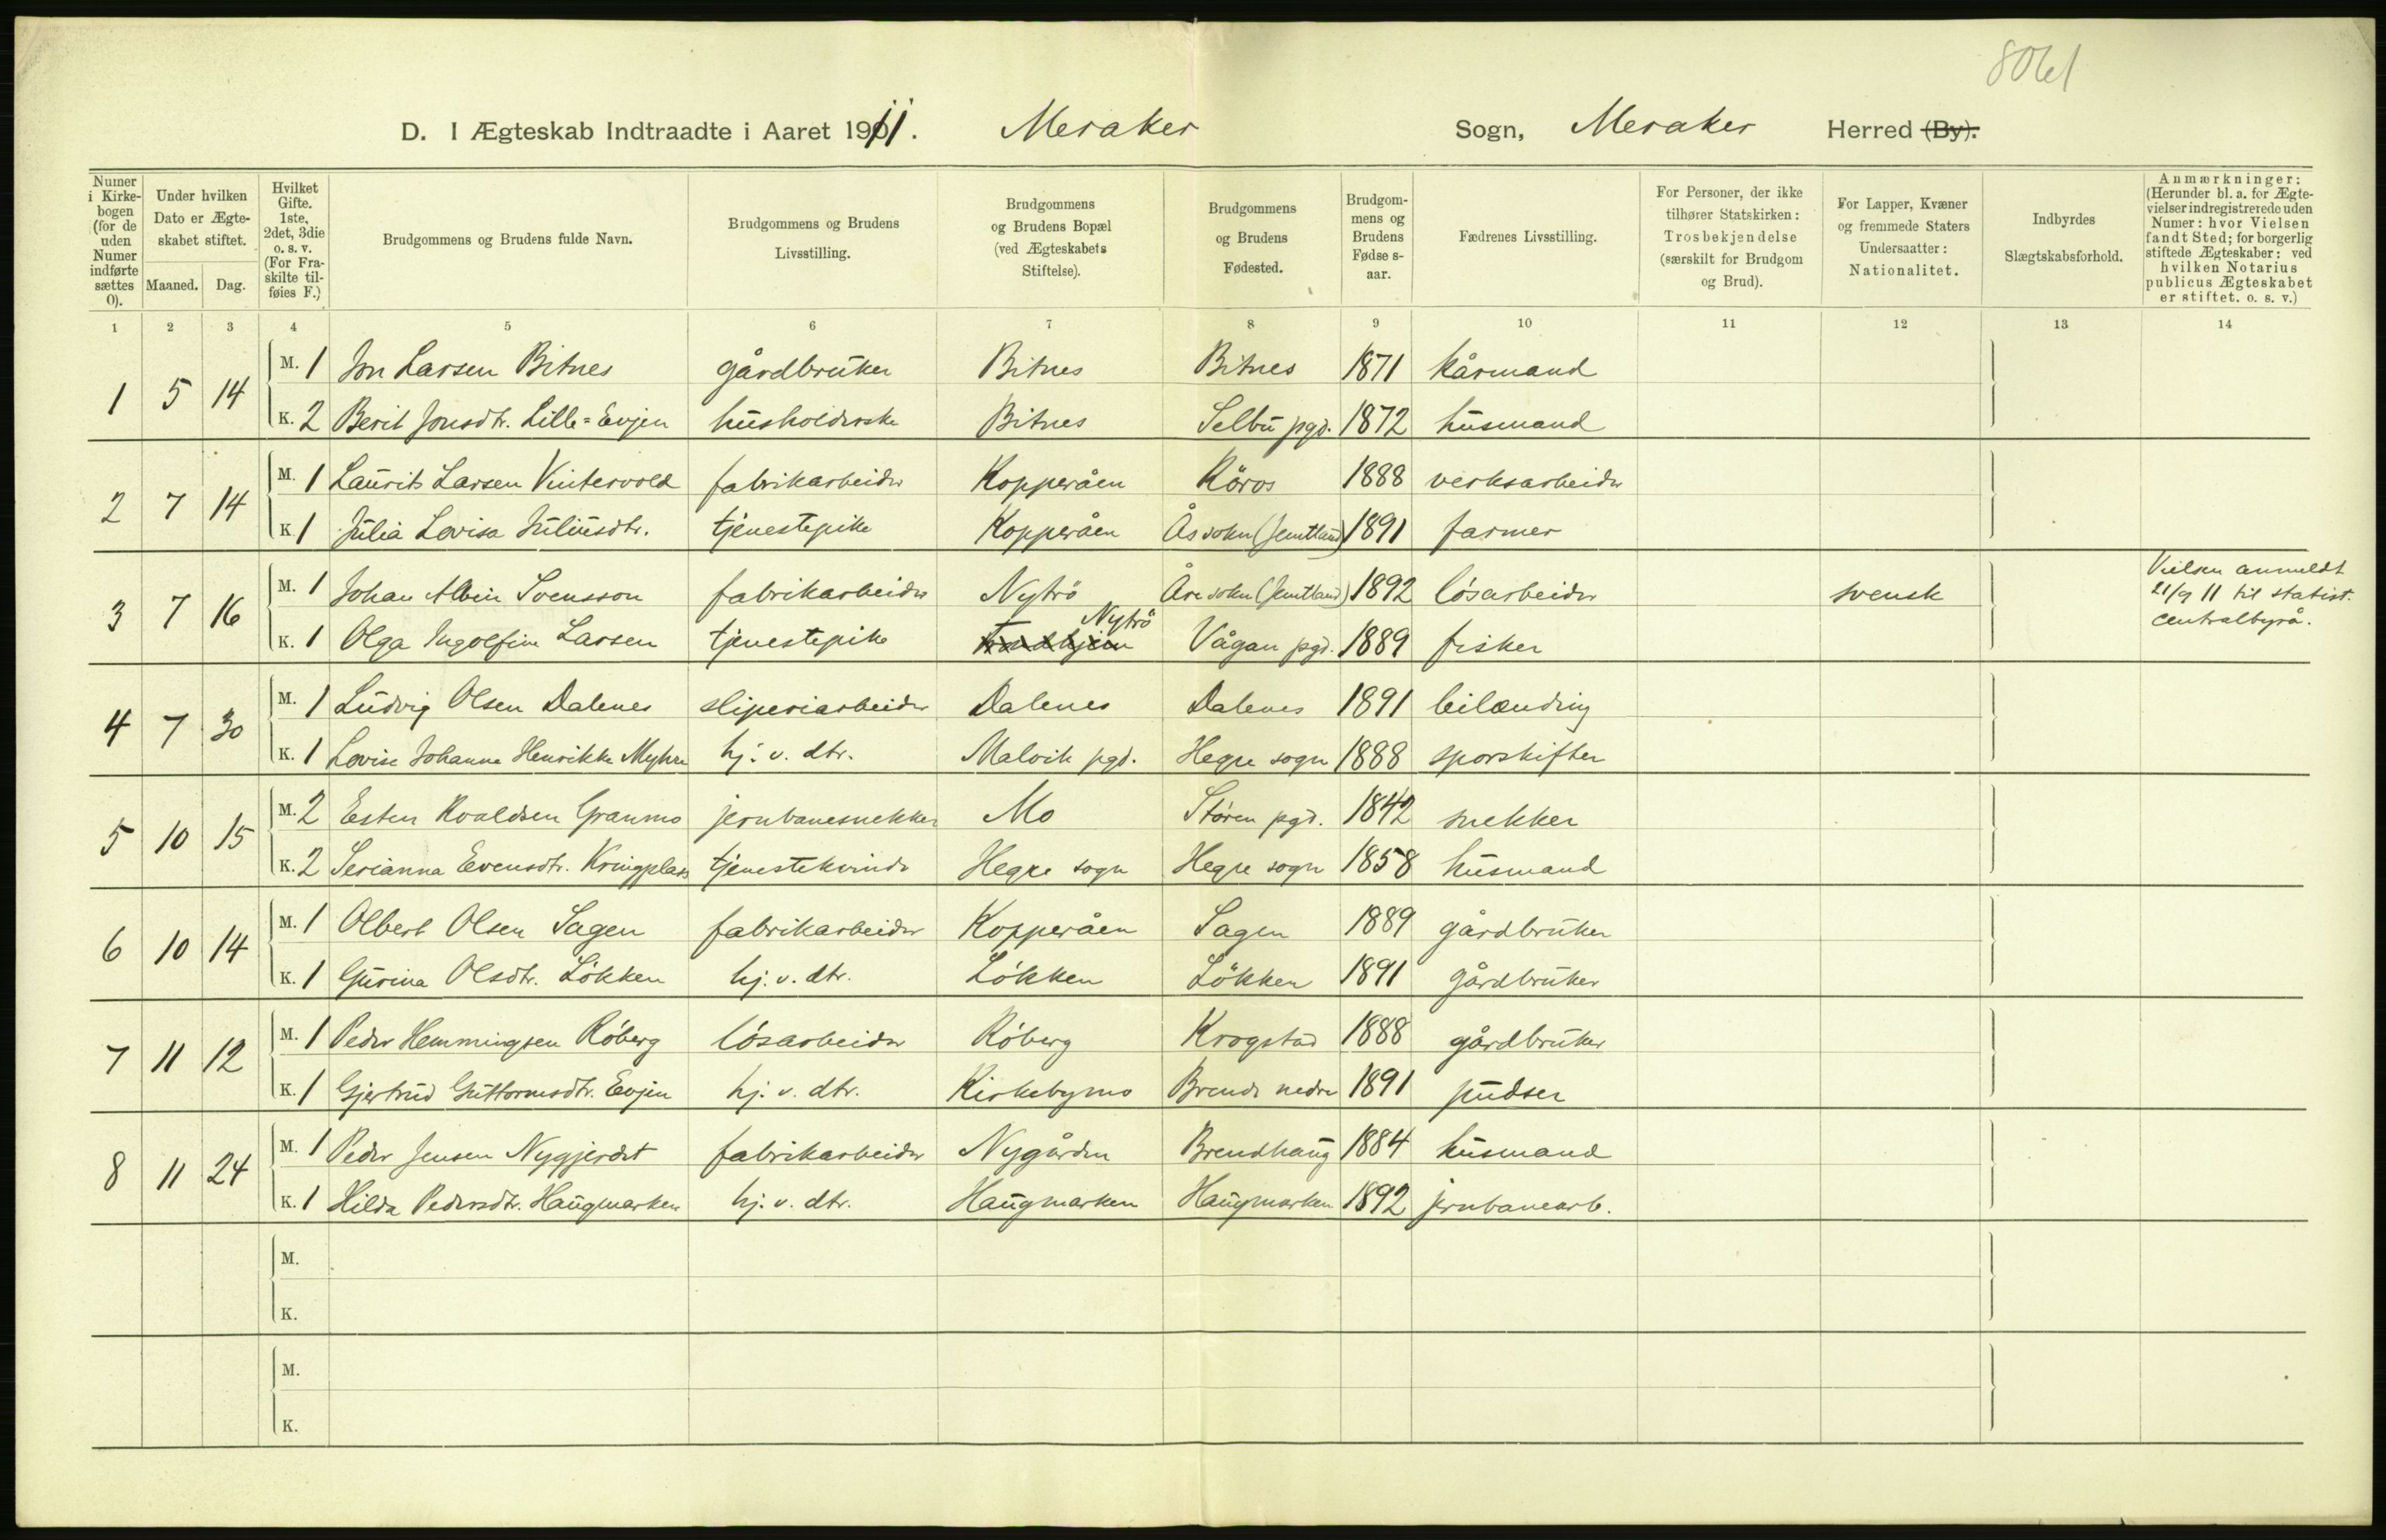 8061
D. I Ægteskab Indtraadte i Aaret 1911. Meraker Sogn, Meraker Herred (By).
Numer i Kirkebogen (for de uden Numer indførte sættes 0).
Under hvilken Dato er Ægteskabet stiftet.
Maaned. Dag.
Hvilket Gifte. 1ste, 2det, 3die o. s. v. (For Fraskilte tilføies F.)
Brudgommens og Brudens fulde Navn.
Brudgommens og Brudens Livsstilling.
Brudgommens og Brudens Bopæl (ved Ægteskabets Stiftelse).
Brudgommens og Brudens Fødested.
Brudgommens og Brudens Fødselsaar.
Fædrenes Livsstilling.
For Personer, der ikke tilhører Statskirken: Trosbekjendelse (særskilt for Brudgom og Brud).
For Lapper, Kvæner og fremmede Staters Undersaatter: Nationalitet.
Indbyrdes Slægtskabsforhold.
Anmærkninger: (Herunder bl. a. for Ægtevielser indregistrerede uden Numer: hvor Vielsen fandt Sted; for borgerlig stiftede Ægteskaber: ved hvilken Notarius publicus Ægteskabet er stiftet. o. s. v.)
1 2 3 4 5 6 7 8 9 10 11 12 13 14
1 5 14 M. 1 Jon Larsen Bitnes gårdbruker Bitnes Bitnes 1871 kårmand
K. 2 Berit Jonsdtr. Lille=Evjen husholderske Bitnes Selbu pgd. 1872 husmand
2 7 14 M. 1 Laurits Larsen Vintervold fabrikarbeider Kopperåen Röros 1888 verksarbeider
K. 1 Julia Lovisa Juliusdtr. tjenestepike Kopperåen Ås sokn (Jemtland) 1891 farmer
3 7 16 M. 1 Johan Albin Svensson fabrikarbeider Nytrö Åre sokn (Jemtland) 1892 lösarbeider svensk Vielsen anmeldt
21/9 11 til statist.
centralbyrå.
K. 1 Olga Ingolfine Larsen tjenestepike Trondhjem Nytrö Vågan pgd. 1889 fisker
4 7 30 M. 1 Ludvig Olsen Dalenes sliperiarbeider Dalenes Dalenes 1891 leilænding
K. 1 Lovise Johanne Henrikke Myhre hj. v. dtr. Malvik pgd. Hegre sogn 1888 sporskifter
5 10 15 M. 2 Esten Roaldsen Granmo jernbanesnekker Mo Støren pgd. 1842 snekker
K. 2 Serianna Evensdtr. Kringplass tjenestekvinde Hegre sogn Hegre sogn 1858 husmand
6 10 14 M. 1 Olbert Olsen Sagen fabrikarbeider Kopperåen Sagen 1889 gårdbruker
K. 1 Gurina Olsdtr. Lökken hj. v. dtr. Lökken Lökken 1891 gårdbruker
7 11 12 M. 1 Peder Hemmingsen Röberg lösarbeider Röberg Krogstad 1888 gårdbruker
K. 1 Gjertrud Guttormsdtr. Evjen hj. v. dtr. Kirkebymo Brende nedre 1891 pudser
8 11 24 M. 1 Peder Jensen Nygjerdet fabrikarbeider Nygården Brendhaug 1884 husmand
K. 1 Hilda Pedersdtr. Haugmarken hj. v. dtr. Haugmarken Haugmarken 1892 jernbanearb.
M.
K.
M.
K.